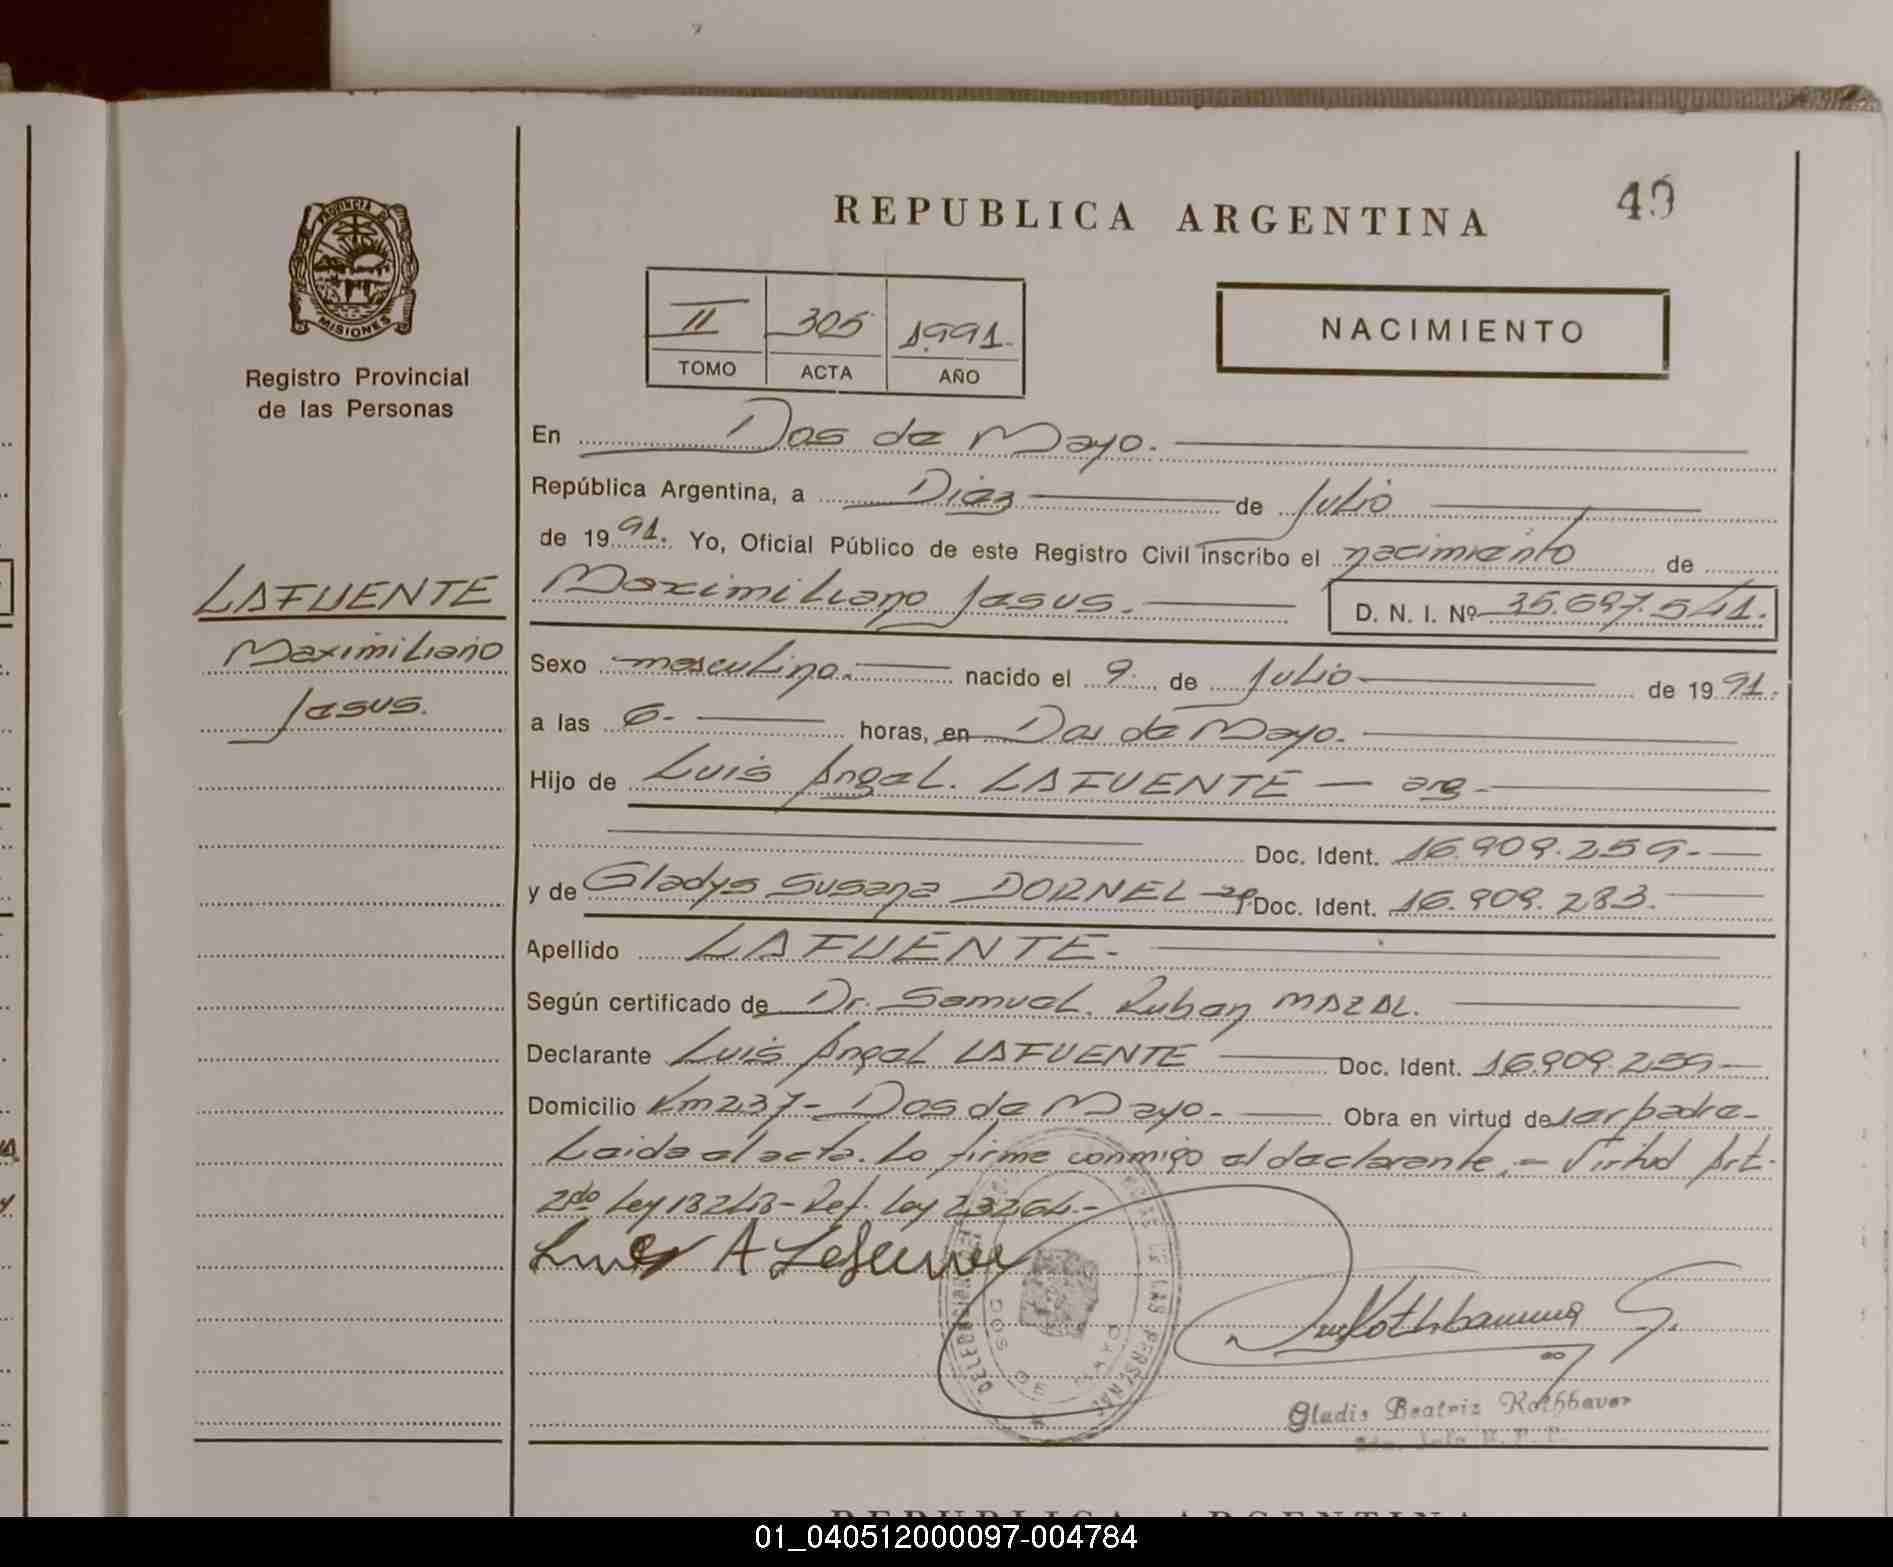 REPUBLICA ARGENTINA
49
PROVINCIA DE
MISIONES
Registro Provincial
de las Personas
II 305 1991.-
TOMO ACTA AÑO
NACIMIENTO
En Dos de Mayo.
República Argentina, a Diez de Julio
de 1991. Yo, Oficial Público de este Registro Civil inscribo el nacimiento de
LAFUENTE
Maximiliano
Jesus.
Maximiliano Jesus. D. N. I. Nº 35.697.541.
Sexo masculino. nacido el 9 de Julio de 1991.
a las 6.- horas, en Dos de Mayo.
Hijo de Luis Angel. LAFUENTE — arg.
Doc. Ident. 16.909.259.-
y de Gladys Susana DORNEL - arg Doc. Ident. 16.909.283.
Apellido LAFUENTE.-
Según certificado de Dr. Samuel. Ruben MAZAL.
Declarante Luis Angel LAFUENTE Doc. Ident. 16.909.259-
Domicilio Km 237- Dos de Mayo.- Obra en virtud de ser padre-
Leida el acta. Lo firme conmigo el declarante.- Virtud Art.
2do Ley 18248- Ref. Ley 23264.-
Luis A Lafuente
DOS DE MAYO
DE LAS PERSONAS
Rothbauer G.
Gladis Beatriz Rothbauer
REPUBLICA ARGENTINA
01_040512000097-004784